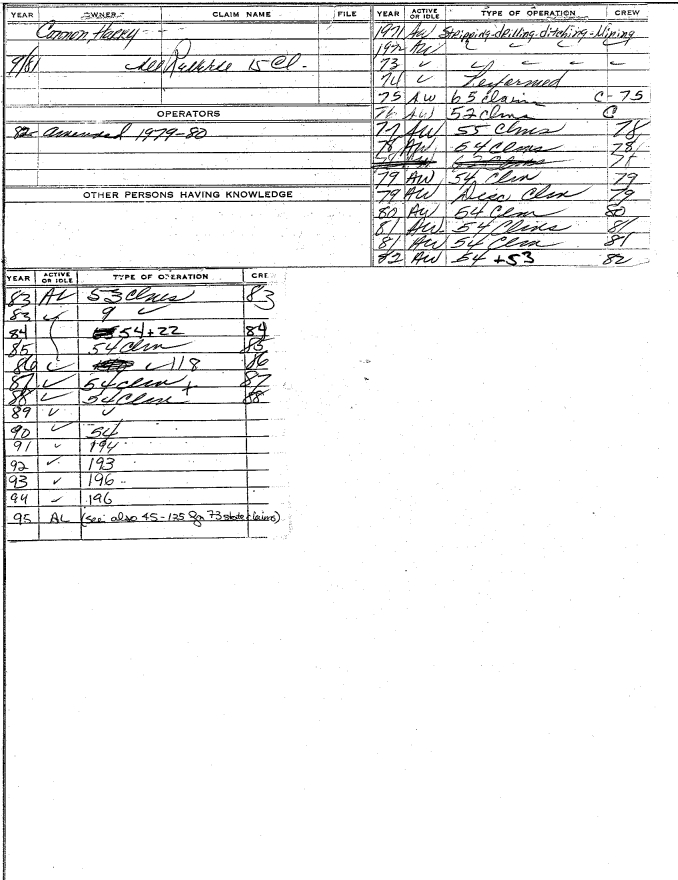 YEAR OWNER CLAIM NAME FILE
Harry
9/81 See Reverse 15 Cl.
OPERATORS
82 amended 1979-80
OTHER PERSONS HAVING KNOWLEDGE
YEAR ACTIVE OR IDLE TYPE OF OPERATION CREW
1971 AW Stripping-drilling-ditching-Mining
1972 AW " " " "
73 ✓ " " " "
74 ✓ Performed
75 AW 65 claims C-75
76 AW 52 clms C
77 AW 55 Clms 78
78 AW 54 Clms 78
79 AW 54 Clm 79
79 AW Disc Clm 79
80 AW 54 Clm 80
81 AW 54 Clms 81
81 AW 54 Clm 81
82 AW 54 +53 82
YEAR ACTIVE OR IDLE TYPE OF OPERATION CRE
83 AL 53 Clms 83
83 ✓ 9 ✓
84 54+22 84
85 54 Clm 85
86 ✓ ✓ 118 86
87 ✓ 54 Clm + 87
88 ✓ 54 Clm + 88
89 ✓ ✓
90 ✓ 54
91 ✓ 194
92 ✓ 193
93 ✓ 196
94 ✓ 196
95 AL (see also 45-125 for 73 state claims)